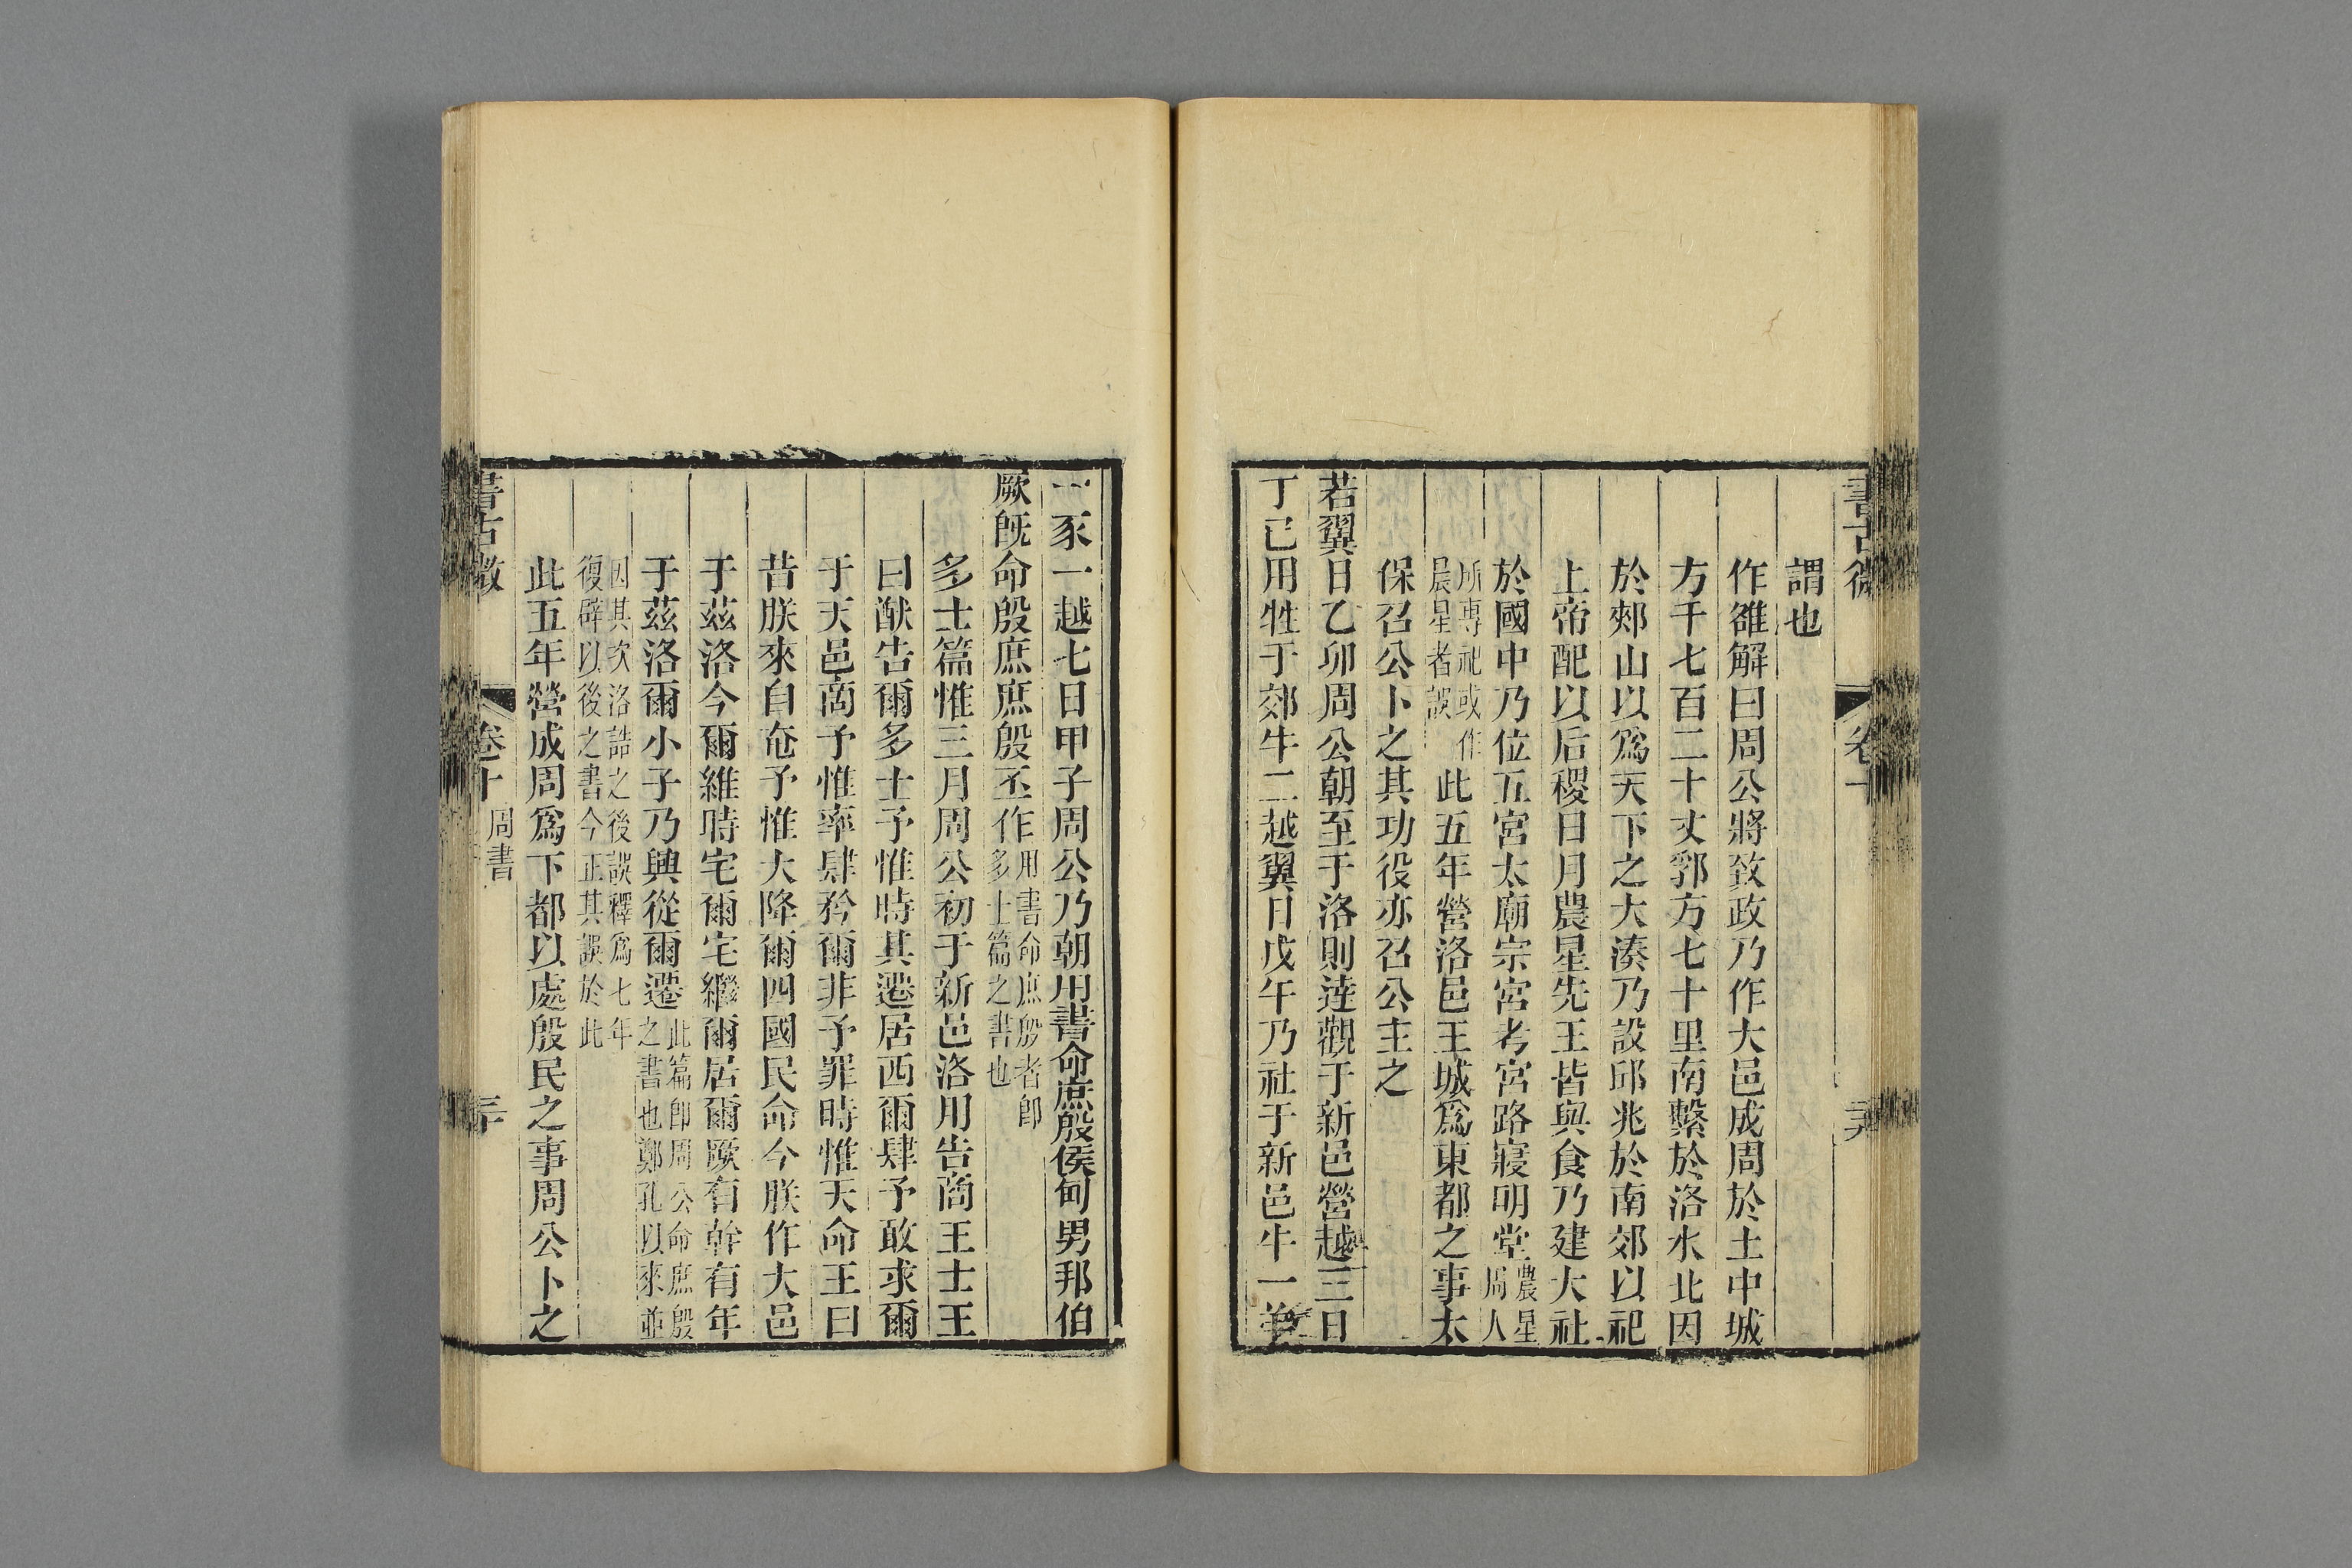 謂也
作雒解曰周公將致政乃作大邑成周於土中城
方千七百二十丈郛方七十里南繫於洛水北因
於郟山以爲天下之大湊乃設邱兆於南郊以祀
上帝配以后稷日月農星先王皆與食乃建大社
於國中乃位五宮太廟宗宮考宮路寢明堂農星周人
所專祀或作晨星者誤此五年營洛邑王城爲東都之事太
保召公卜之其功役亦召公主之
若翼日乙卯周公朝至于洛則達觀于新邑營越三日
丁巳用牲于郊牛二越翼日戊午乃社于新邑牛一羊
一豕一越七日甲子周公乃朝用書命庶殷侯甸男邦伯
厥旣命殷庶庶殷丕作用書命庶殷者卽多士篇之書也
多士篇惟三月周公初于新邑洛用告商王士王
曰猷告爾多士予惟時其遷居西爾肆予敢求爾
于天邑商予惟率肆矜爾非予罪時惟天命王曰
昔朕來自奄予惟大降爾四國民命今朕作大邑
于茲洛今爾維時宅爾宅繼爾居爾厥有幹有年
于茲洛爾小子乃興從爾遷此篇卽周公命庶殷之書也鄭孔以來並
因其次洛誥之後誤釋爲七年復辟以後之書今正其誤於此
此五年營成周爲下都以處殷民之事周公卜之
書古微
卷十
周書
三十